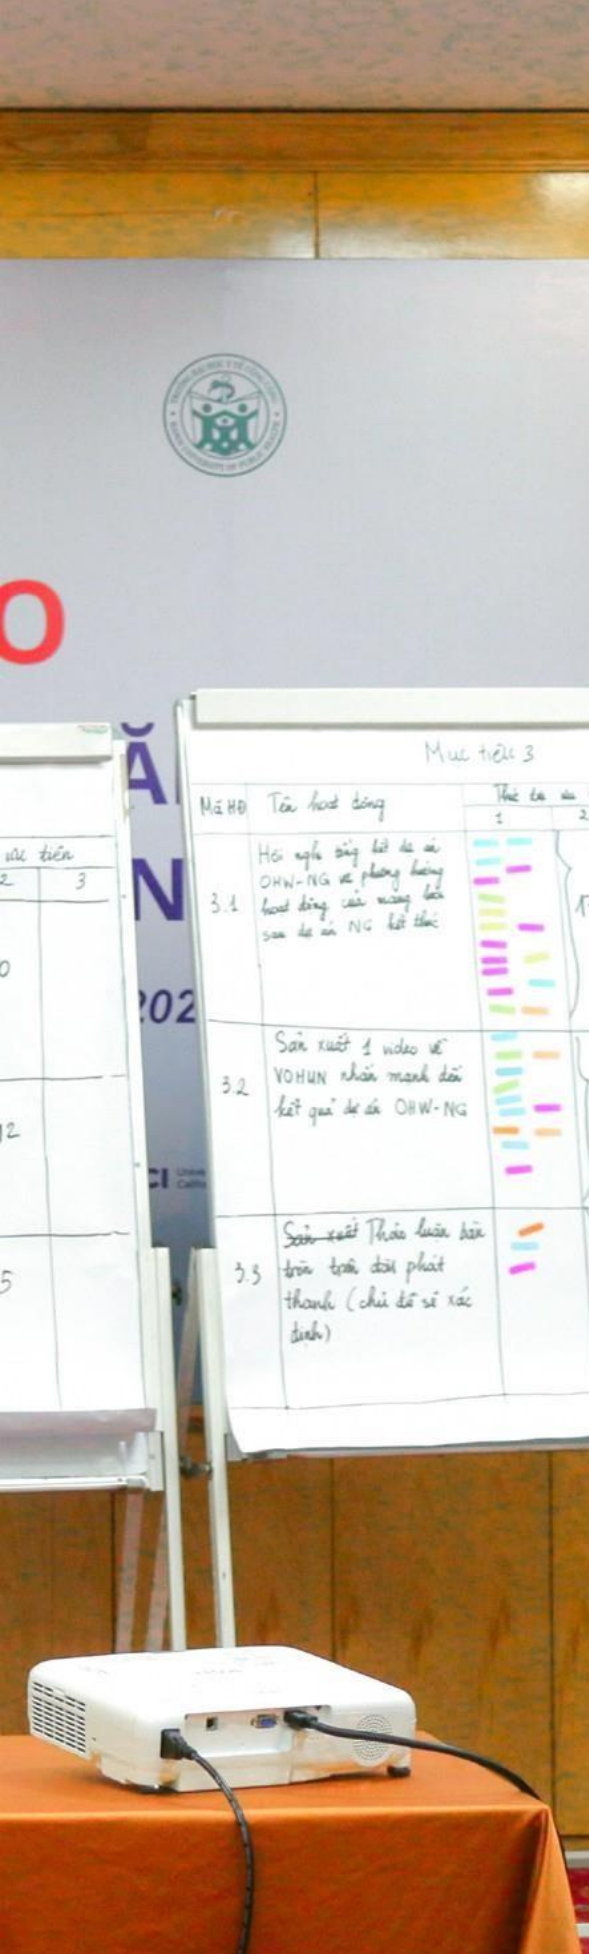 TRƯỜNG ĐẠI HỌC Y TẾ CÔNG CỘNG
HANOI UNIVERSITY OF PUBLIC HEALTH
O
Ă
N
202
CI
ưu tiên
2 3
0
12
5
Mục tiêu 3
Mã HĐ Tên hoạt động Thứ tự ưu
1 2
3.1 Hội nghị tổng kết dự án
OHW-NG và phương hướng
hoạt động của mạng lưới
sau dự án NG kết thúc
3.2 Sản xuất 1 video về
VOHUN nhấn mạnh đến
kết quả dự án OHW-NG
3.3 Sản xuất Thảo luận bàn
tròn trên đài phát
thanh (chủ đề sẽ xác
định)